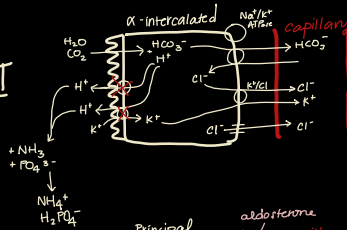 α-intercalated
Na⁺/K⁺
ATPase
capillary
H₂O
CO₂
HCO₃⁻
H⁺
HCO₃⁻
Cl⁻
H⁺
K⁺/Cl
Cl⁻
K⁺
H⁺
K⁺
K⁺
Cl⁻
Cl⁻
+ NH₃
+ PO₄³⁻
NH₄⁺
H₂PO₄⁻
Principal
aldosterone